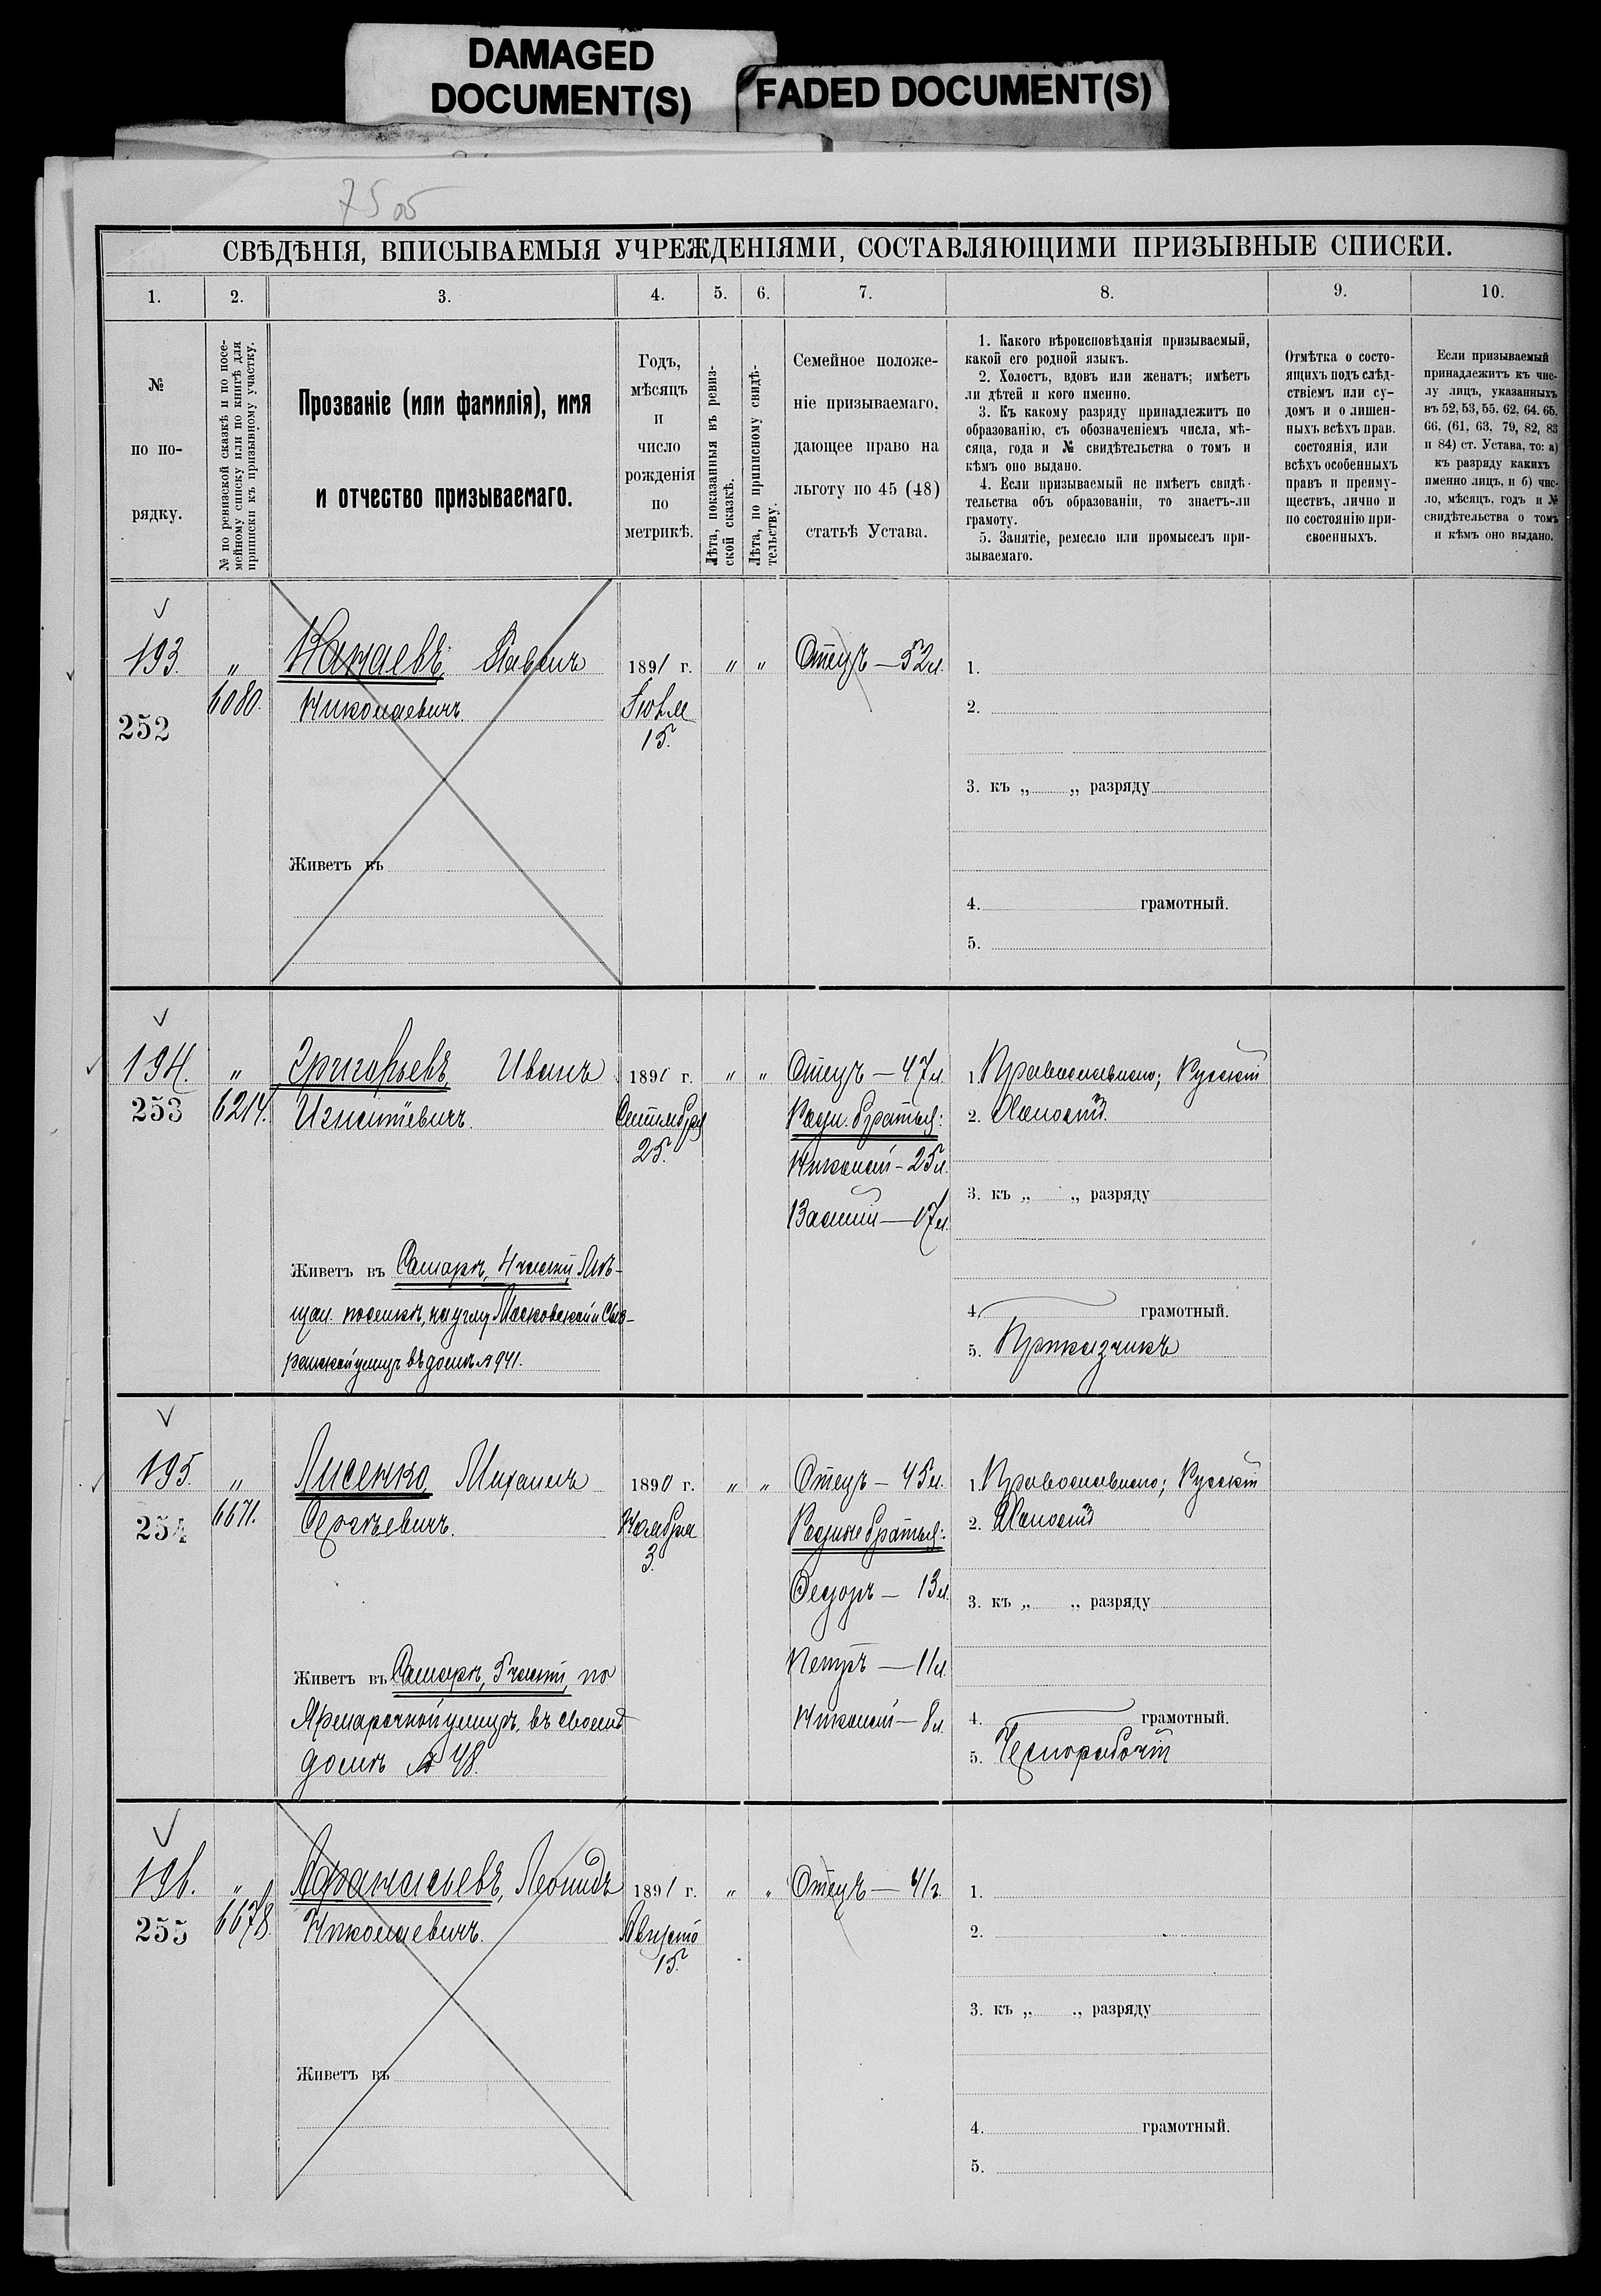 DAMAGED
DOCUMENT(S)
FADED DOCUMENT(S)
СВѢДѢНІЯ, ВПИСЫВАЕМЫЯ УЧРЕЖДЕНІЯМИ, СОСТАВЛЯЮЩИМИ ПРИЗЫВНЫЕ СПИСКИ.
1.
2.
3.
4.
5.
6.
7.
8.
9.
10.
№
по по-
рядку.
№ по ревизской сказкѣ и по посе-
мейному списку или по книгѣ для
приписки къ призывному участку.
Прозваніе (или фамилія), имя
и отчество призываемаго.
Годъ,
мѣсяцъ
и
число
рожденія
по
метрикѣ.
Лѣта, показанныя въ ревиз-
ской сказкѣ.
Лѣта, по приписному свидѣ-
тельству.
Семейное положе-
ніе призываемаго,
дающее право на
льготу по 45 (48)
статьѣ Устава.
1. Какого вѣроисповѣданія призываемый,
какой его родной языкъ.
2. Холостъ, вдовъ или женатъ; имѣетъ
ли дѣтей и кого именно.
3. Къ какому разряду принадлежитъ по
образованію, съ обозначеніемъ числа, мѣ-
сяца, года и № свидѣтельства о томъ и
кѣмъ оно выдано.
4. Если призываемый не имѣетъ свидѣ-
тельства объ образованіи, то знаетъ-ли
грамоту.
5. Занятіе, ремесло или промыселъ при-
зываемаго.
Отмѣтка о состо-
ящихъ подъ слѣд-
ствіемъ или су-
домъ и о лишен-
ныхъ всѣхъ прав.
состоянія, или
всѣхъ особенныхъ
правъ и преиму-
ществъ, лично и
по состоянію при-
своенныхъ.
Если призываемый
принадлежитъ къ чис-
лу лицъ, указанныхъ
въ 52, 53, 55. 62, 64. 65,
66. (61, 63, 79, 82, 83
и 84) ст. Устава, то: а)
къ разряду какихъ
именно лицъ, и б) чис-
ло, мѣсяцъ, годъ и №
свидѣтельства о томъ
и кѣмъ оно выдано.
193. „ Павелъ 1891 г. „ „ Отецъ — 52л. 1.
252 6080. Николаевичъ. Іюля 2.
15.
3. къ „ „ разряду
Живетъ въ
4. грамотный.
5.
194. „ Григорьевъ Иванъ 1891 г. „ „ Отецъ — 47л. 1. Православного; Русскій
253 6214. Игнатіевичъ. Сентября Родн. братья: 2. Холостъ.
25. Николай - 25л.
3. къ „ „ разряду
Василій — 17л.
Живетъ въ Самарѣ, 4 части, Мѣ-
щан. поселкѣ, на углу Московской и Сыз-
ранской улицъ въ домѣ № 941.
4. грамотный.
5. Приказчикъ
195. „ Лисенко Михаилъ 1890 г. „ „ Отецъ — 45л. 1. Православного; Русскій
254 6671. Сергѣевичъ. Ноября Родные братья: 2. Холостъ
3. Федоръ — 13л.
3. къ „ „ разряду
Петръ — 11л.
Николай — 8л.
Живетъ въ Самарѣ, 5 части, по
Ярмарочной улицѣ, въ своемъ
домѣ № 48.
4. грамотный.
5. Чернорабочій
196. „ Афанасьевъ, Леонидъ 1891 г. „ „ Отецъ — 41г. 1.
255 6678. Николаевичъ. Августа 2.
15.
3. къ „ „ разряду
Живетъ въ
4. грамотный.
5.